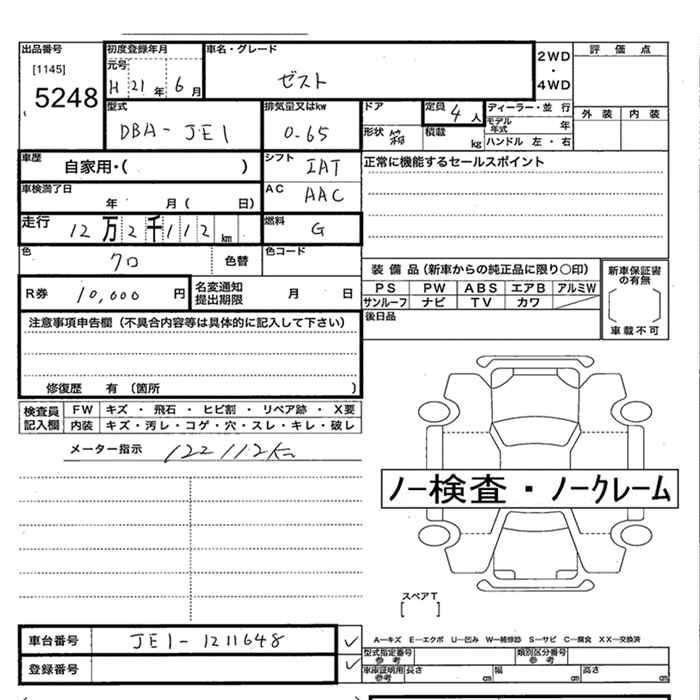 出品番号 初度登録年月 車名・グレード 評 価 点
[1145] 元号 2WD
5248 H 21 年 6 月 ゼスト ・
4WD
型式 排気量又はkw ドア 定員 4 人 ディーラー・並 行 外 装 内 装
DBA-JE1 0.65 形状 積載 kg モデル年式 年
ハンドル 左・右
車歴 自家用・( ) シフト IAT 正常に機能するセールスポイント
車検満了日 年 月( 日) AC AAC
走行 12 万 2 千 1 1 2 km 燃料 G
色 クロ 色替 色コード
装 備 品(新車からの純正品に限り〇印) 新車保証書の有無
R券 10,000 円 名変通知提出期限 月 日 PS PW ABS エアB アルミW
サンルーフ ナビ TV カワ 車載不可
注意事項申告欄(不具合内容等は具体的に記入して下さい) 後日品
修復歴 有 (箇所 )
検査員記入欄 FW キズ ・ 飛石 ・ ヒビ割 ・ リペア跡 ・ X要
内装 キズ・汚レ・コゲ・穴・スレ・キレ・破レ
メーター指示 122112km
ノー検査・ノークレーム
スペアT
[ ]
車台番号 JE1-1211648 ✓ A―キズ E―エクボ U―凹み W―補修跡 S―サビ C―腐食 XX―交換済
登録番号 ✓ 型式指定番号 参考 類別区分番号 参考
車庫証明用 参考 長さ cm 幅 cm 高さ cm